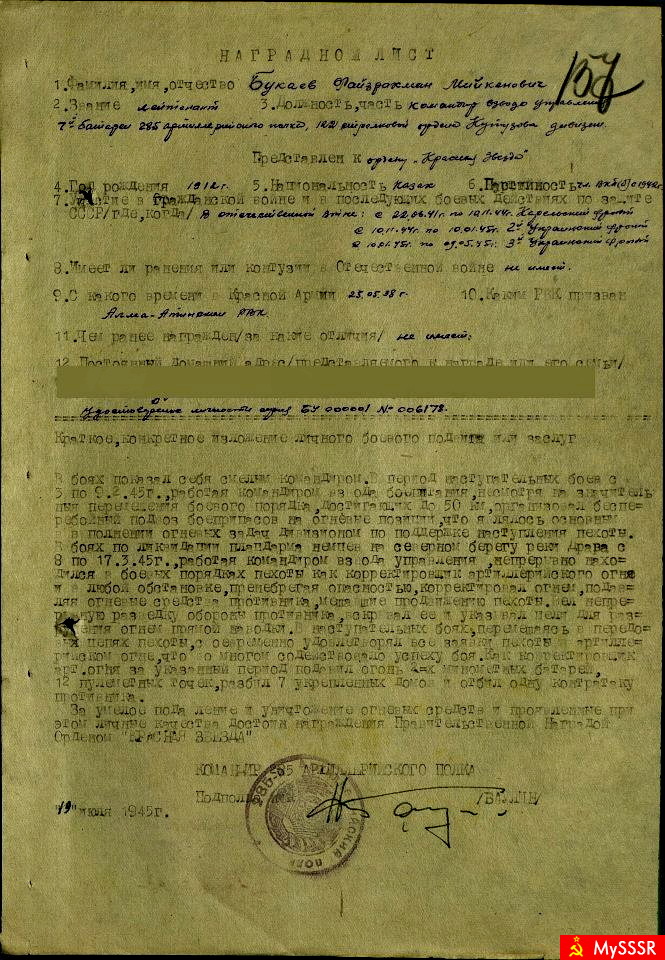 157
НАГРАДНОЙ ЛИСТ
1.Фамилия,имя,отчество Букаев Файзрахман Мийкенович
2.Звание лейтенант 3.Должность,часть командир взвода управления
7й батареи 285 артиллерийского полка, 122 стрелковой ордена Кутузова дивизии.
Представлен к ордену „Красная Звезда"
4.Год рождения 1912г. 5.Национальность казак 6.Партийность чл. ВКП(б) с 1942г.
7.Участие в Гражданской войне и в последующих боевых действиях по защите
СССР/где,когда/ В отечественной войне: с 22.06.41г по 10.11.44г Карельский фронт
с 10.11.44г по 10.01.45г 2й Украинский фронт
с 10.01.45г по 09.05.45г 3й Украинский фронт
8.Имеет ли ранения или контузии в Отечественной войне не имеет.
9.С какого времени в Красной Армии 25.05.38г. 10.Каким РВК призван
Алма-Атинским РВК.
11.Чем ранее награжден/за какие отличия/ не имеет.
12.Постоянный домашний адрес/представляемого к награде или его семьи/
Удостоверение личности серия БУ 000001 № 006178.
Краткое,конкретное изложение личного боевого подвига или заслуг
В боях показал себя смелым командиром.В период наступательных боев с
3 по 9.2.45г.,работая командиром взвода боепитания,несмотря на значитель
ные перемещения боевого порядка,достигающих до 50 км,организовал беспе=
ребойный подвоз боеприпасов на огневые позиции,что я лялось основным
в в полнении огневых задач дивизионом по поддержке наступления пехоты.
В боях по ликвидации плацдарма немцев на северном берегу реки Драва с
8 по 17.3.45г.,работая командиром взвода управления ,непрерывно нахо=
дился в боевых порядках пехоты как корректировщик артиллерийского огня
и в любой обстановке,пренебрегая опасностью,корректировал огнем,подав=
ляя огневые средства противника,мешавшие продвижению пехоты.Вел непре=
рывную разведку обороны противника,вскрывал ее и указывал цели для раз=
ения огнем прямой наводки.В наступательных боях,перемещаясь в передо=
вых цепях пехоты,с оевременно удовлетворял все заявки пехоты в артилле=
рийском огне,что во многом содействовало успеху боя.Как корректировщик
арт.огня за указанный период подавил огонь 4=х минометных батарей,
12 пулеметных точек,разбил 7 укрепленных домов и отбил одну контратаку
противника.
За умелое пода ление и уничтожение огневых средств и проявленные при
этом личные качества Достоин награждения Правительственной Наградой
Орденом "КРАСНАЯ ЗВЕЗДА"
КОМАНДИР 285 АРТИЛЛЕРИЙСКОГО ПОЛКА
Подпол /БАУЛИН/
"19" июля 1945г.
MySSSR